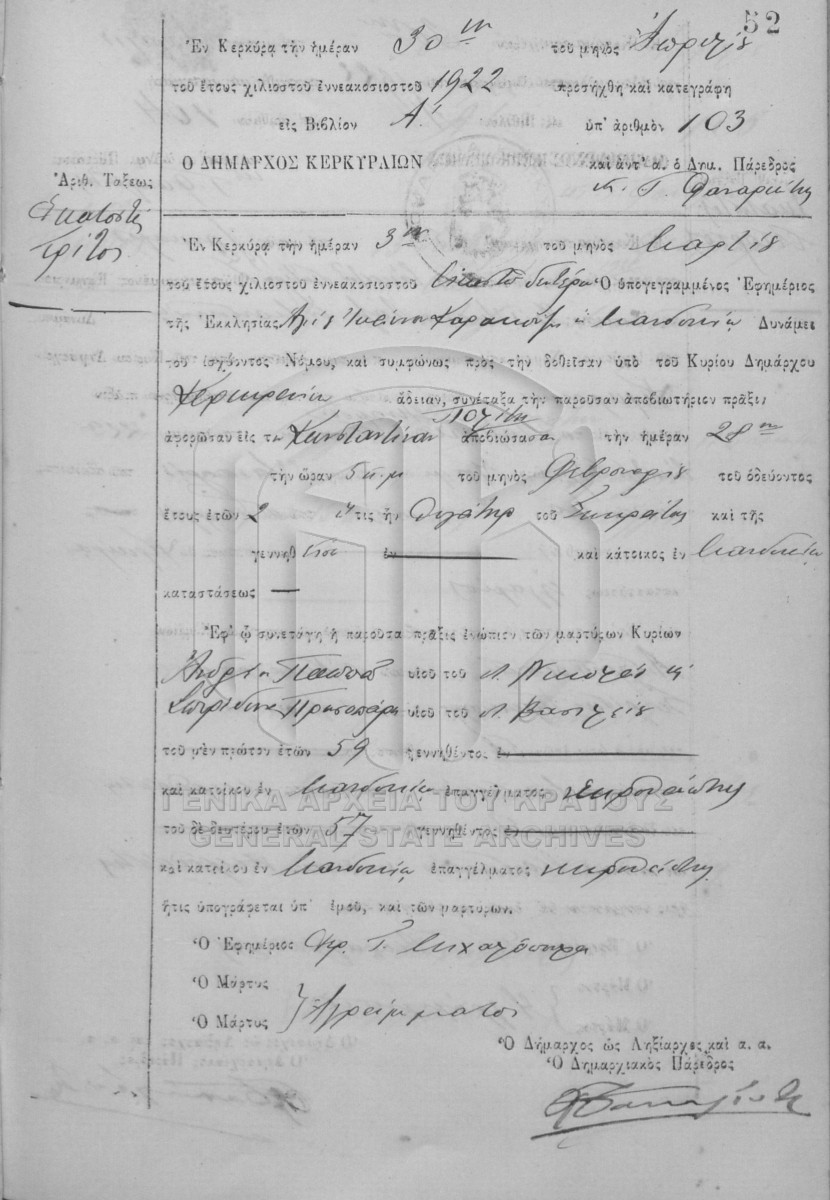 52
Ἐν Κερκύρᾳ τὴν ἡμέραν 30ην τοῦ μηνὸς Ἀπριλίου
τοῦ ἔτους χιλιοστοῦ ἐννεακοσιοστοῦ 1922 προσήχθη καὶ κατεγράφη
εἰς Βιβλίον Α' ὑπ' ἀριθμὸν 103
Ο ΔΗΜΑΡΧΟΣ ΚΕΡΚΥΡΑΙΩΝ καὶ ἀντ' α. ὁ Δημ. Πάρεδρος
Ἀριθ. Τάξεως
Ἑκατοστὴ
Τρίτη
Ἐν Κερκύρᾳ τὴν ἡμέραν 3ην τοῦ μηνὸς Μαρτίου
τοῦ ἔτους χιλιοστοῦ ἐννεακοσιοστοῦ δευτέρου Ὁ ὑπογεγραμμένος Ἐφημέριος
τῆς Ἐκκλησίας Δυνάμει
τοῦ ἰσχύοντος Νόμου, καὶ συμφώνως πρὸς τὴν δοθεῖσαν ὑπὸ τοῦ Κυρίου Δημάρχου
Κερκυραίων ἄδειαν, συνέταξα τὴν παροῦσαν ἀποβιωτήριον πρᾶξιν
Πολίτη
ἀφορῶσαν εἰς τὴν Κωνσταντίναν ἀποβιώσασαν τὴν ἡμέραν 28ην
τὴν ὥραν 5 π.μ τοῦ μηνὸς Φεβρουαρίου τοῦ ὁδεύοντος
ἔτους ἐτῶν 2 ἥτις ἦν θυγάτηρ τοῦ Σωκράτη καὶ τῆς
γεννηθεῖσα ἐν καὶ κάτοικος ἐν Μανδουκίῳ
καταστάσεως —
Ἐφ' ᾧ συνετάγη ἡ παροῦσα πρᾶξις ἐνώπιον τῶν μαρτύρων Κυρίων
Ἀνδρέα Παππᾶ υἱοῦ τοῦ Νικολάου καὶ
Σπυρίδωνα υἱοῦ τοῦ Βασιλείου
τοῦ μὲν πρώτου ἐτῶν 59 γεννηθέντος ἐν
καὶ κατοίκου ἐν Μανδουκίῳ ἐπαγγέλματος νεκροθάπτης
ΓΕΝΙΚΑ ΑΡΧΕΙΑ ΤΟΥ ΚΡΑΤΟΥΣ
τοῦ δὲ δευτέρου ἐτῶν 57 γεννηθέντος ἐν
GENERAL STATE ARCHIVES
καὶ κατοίκου ἐν Μανδουκίῳ ἐπαγγέλματος νεκροθάπτης
ἥτις ὑπογράφεται ὑπ' ἐμοῦ, καὶ τῶν μαρτύρων.
Ὁ Ἐφημέριος
Ὁ Μάρτυς
Ὁ Μάρτυς Ἀγράμματοι
Ὁ Δήμαρχος ὡς Ληξίαρχος καὶ α. α.
Ὁ Δημαρχιακὸς Πάρεδρος